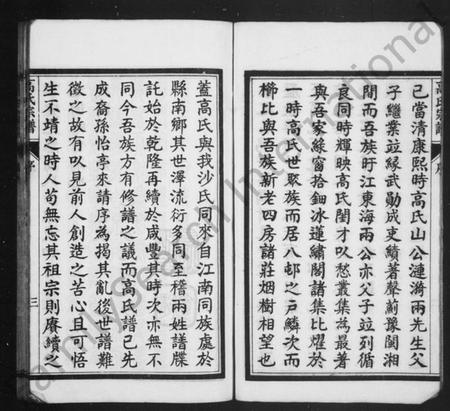 已當清康熙時高氏山公漣漪兩先生父
子繼業竝緣武勳成吏績著聲薊豫閩湘
間而吾族旴江東海兩公亦父子竝列循
良同時輝映高氏閨才以愁叢集為最著
與吾家綠窗拾鈿冰蓮繡閣諸集比燿於
一時高氏世聚族而居八邨之戶鱗次而
櫛比與吾族新老四房諸莊烟樹相望也
蓋高氏與我沙氏同來自江南同族處於
縣南鄉其世澤流衍多同至稽兩姓譜牒
託始於乾隆再續於咸豐其時次亦無不
同今吾族方有修譜之議而高氏譜已先
成裔孫怡亭來請序為揭其亂後世譜難
徵之故有以見前人創造之苦心且可悟
生不靖之時人苟無忘其祖宗則賡續之
高氏宗譜
序
三
高氏宗譜
序
FamilySearch International